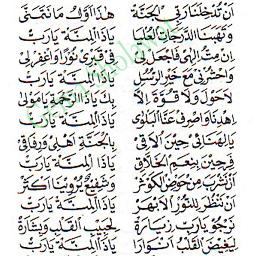 أَنْ تُدْخِلَنَا رَبِّي الْجَنَّةَ هٰذَا أَوَّلُ مَا نَتَمَنَّى
وَتَهَبَنَا الدَّرَجَاتِ الْعُلْيَا يَاذَا الْمِنَّةِ يَارَبِّ
إِنْ مِتُّ إِلٰهِي فَاجْعَلْ لِي فِي قَبْرِي نُوْرًا وَاغْفِرْلِي
وَاحْشُرْنِي مَعَ خَيْرِ الرُّسُلِ يَاذَا الْمِنَّةِ يَارَبِّ
لَاحَوْلَ وَلَا قُوَّةَ إِلَّا بِكَ يَاذَا الرَّحْمَةِ يَامَوْلَى
إِهْدِنَا وَاصْرِفْ عَنَّا الْبَلْوَى يَاذَا الْمِنَّةِ يَارَبِّ
يَالَهَنَا فِي حِيْنَ أُلَاقِي بِالْجَنَّةِ أَهْلِي وَرِفَاقِي
فِي حِيْنَ بِنِعَمِ الْخَلَّاقِ يَاذَا الْمِنَّةِ يَارَبِّ
أَنْ نَشْرَبَ مِنْ حَوْضِ الْكَوْثَرِ وَشَفِيْعٌ يُرْوِيْنَا أَكْثَرَ
أَنْ نَنْظُرَ لِلنُّوْرِ الْأَبْهَرِ يَاذَا الْمِنَّةِ يَارَبِّ
نَرْجُوْ يَارَبِّ زِيَارَةً لِحَبِيْبِ الْقَلْبِ وَبِشَارَةً
لِيَفِيْضَ الْقَلْبُ أَنْوَارًا يَاذَا الْمِنَّةِ يَارَبِّ